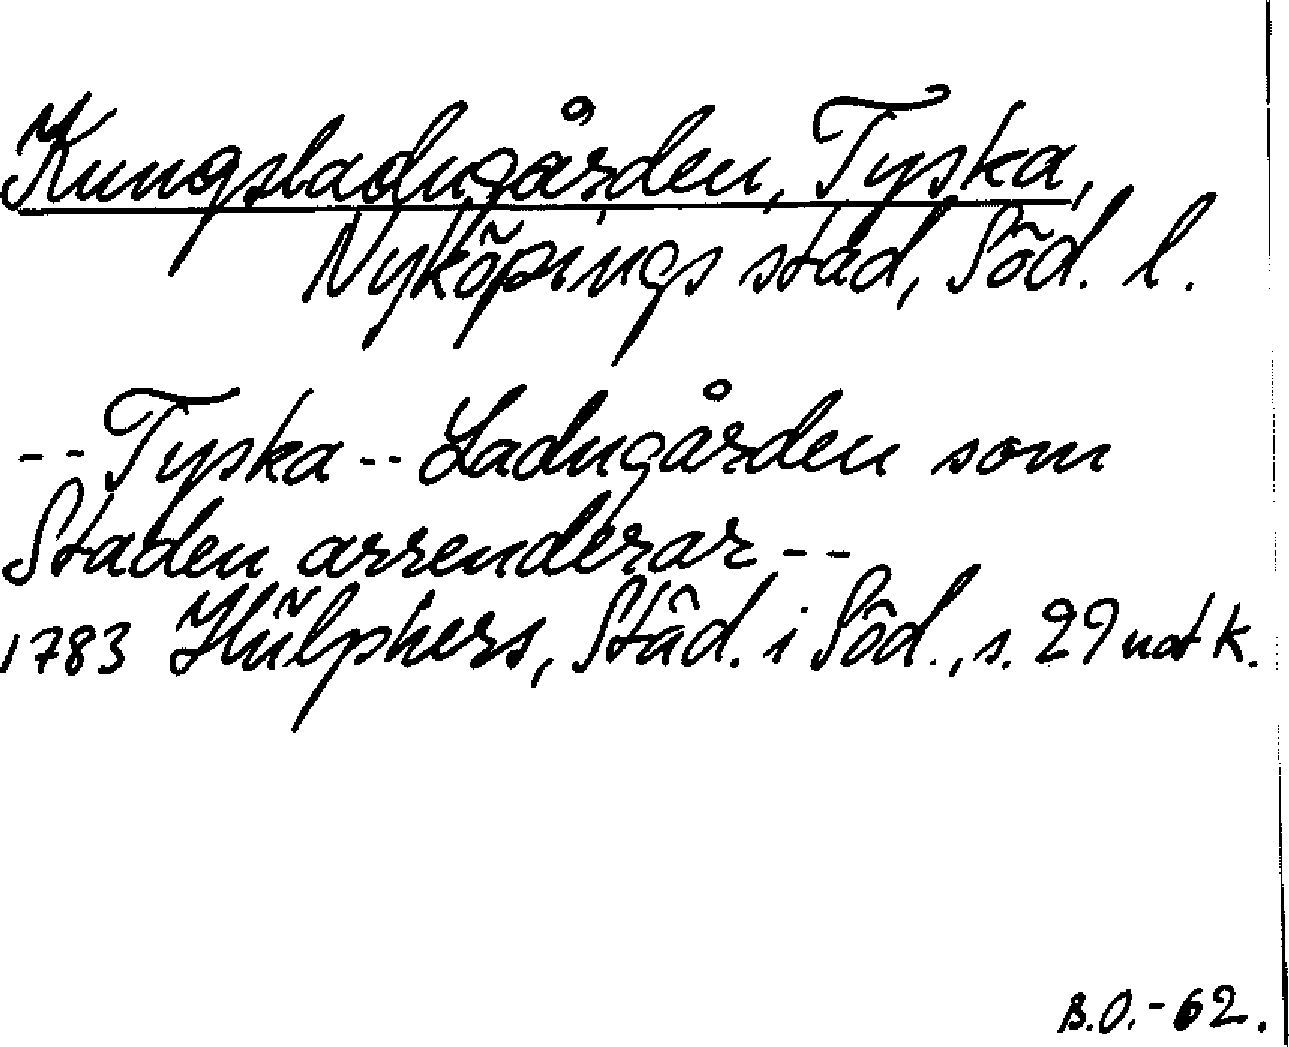 Kungsladugården, Tyska,
Nyköpings stad, Söd. l.
-- Tyska -- Ladugården som
Staden arrenderar --
1783 Hülphers, Städ. i Söd., s. 29 not k.
B.O.-62.